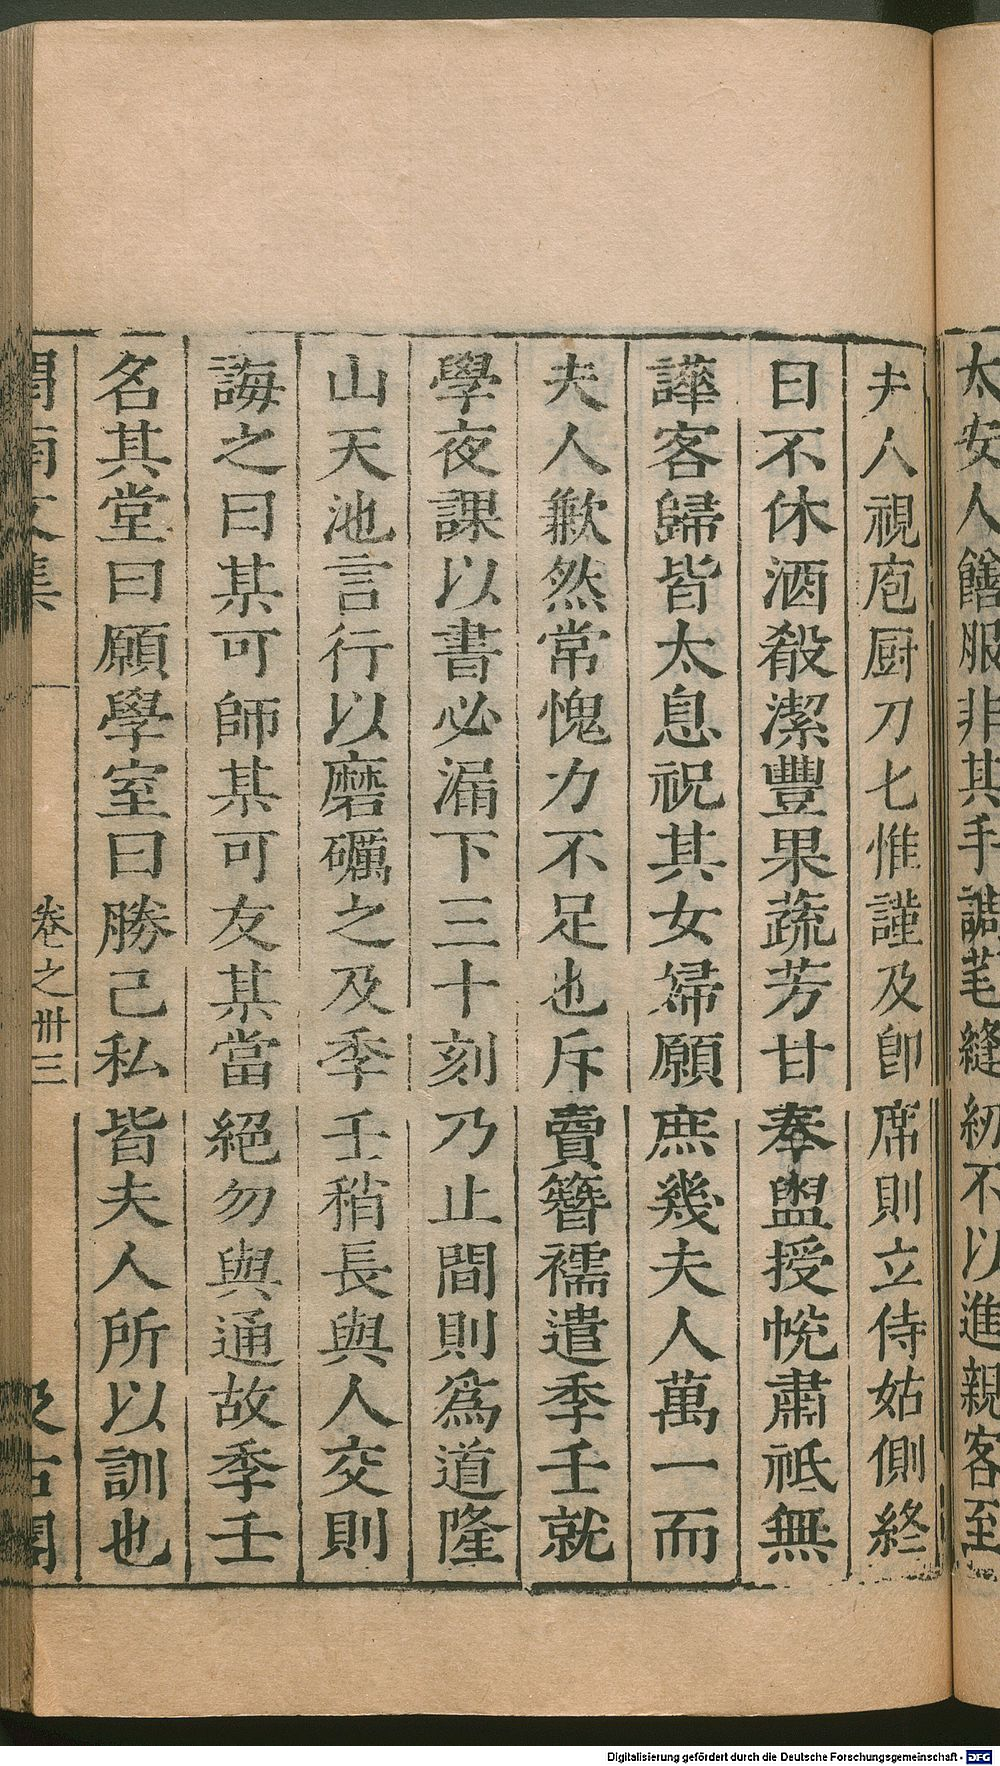 太安人饍服非其手調芼縫紉不以進親客至
夫人視庖厨刀匕惟謹及卽席則立侍姑側終
日不休酒殽潔豐果蔬芳甘奉盥授帨肅祗無
譁客歸皆太息祝其女婦願庶幾夫人萬一而
夫人歉然常愧力不足也斥賣簪襦遣季壬就
學夜課以書必漏下三十刻乃止間則爲道隆
山天池言行以磨礪之及季壬稍長與人交則
誨之曰某可師某可友某當絕勿與通故季壬
名其堂曰願學室曰勝己私皆夫人所以訓也
南文集 卷之卅三 汲古閣
Digitalisierung gefördert durch die Deutsche Forschungsgemeinschaft - DFG